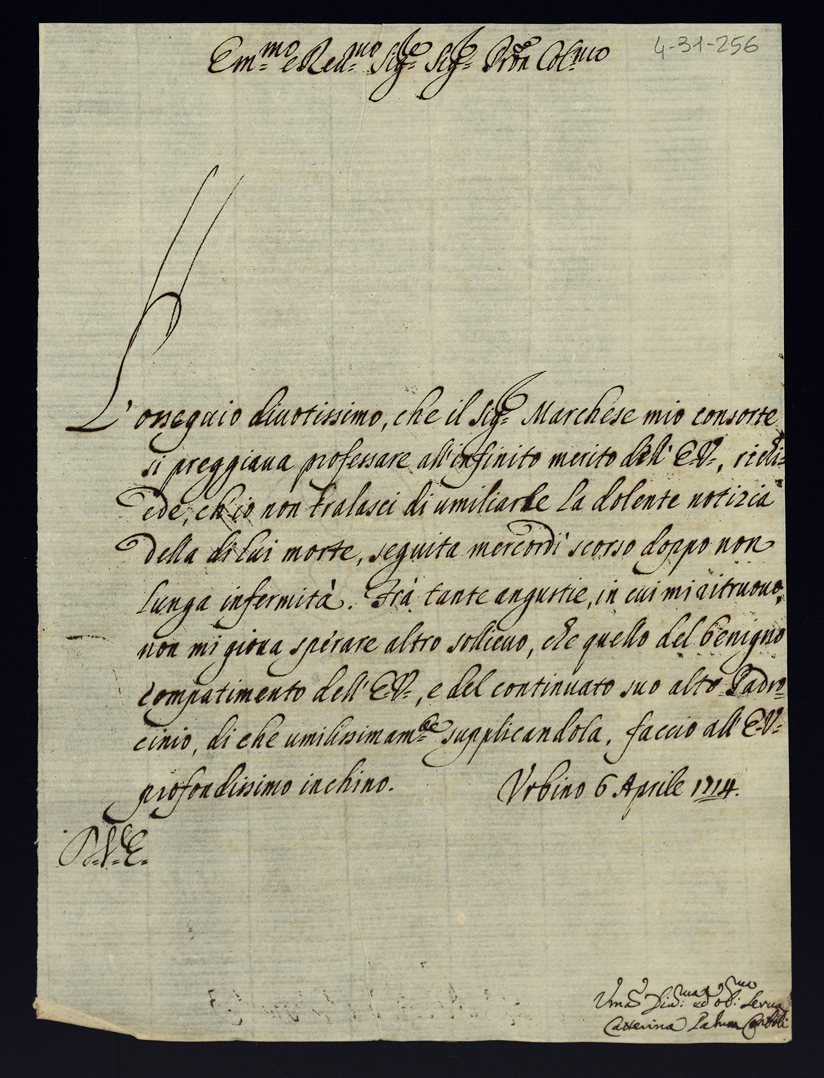 4-31-256
Em:mo e Reu:mo Sig:re Sig:re Pron Col:mo
L'ossequio diuotissimo, che il Sig:re Marchese mio consorte
si preggiaua professare all'infinito merito dell' E.V., richi=
ede, ch'io non tralasci di umiliarle la dolente notizia
della di lui morte, seguita mercordì scorso doppo non
lunga infermità. Frà tante angustie, in cui mi ritruouo,
non mi gioua sperare altro sollieuo, che quello del benigno
compatimento dell' E.V., e del continuato suo alto Padro=
cinio, di che umilissimam:te supplicandola, faccio all' E.V.
profondissimo inchino. Vrbino 6 Aprile 1714.
D. V. E.
Vma Diu:ma ed ob:ma Serua
Catterina